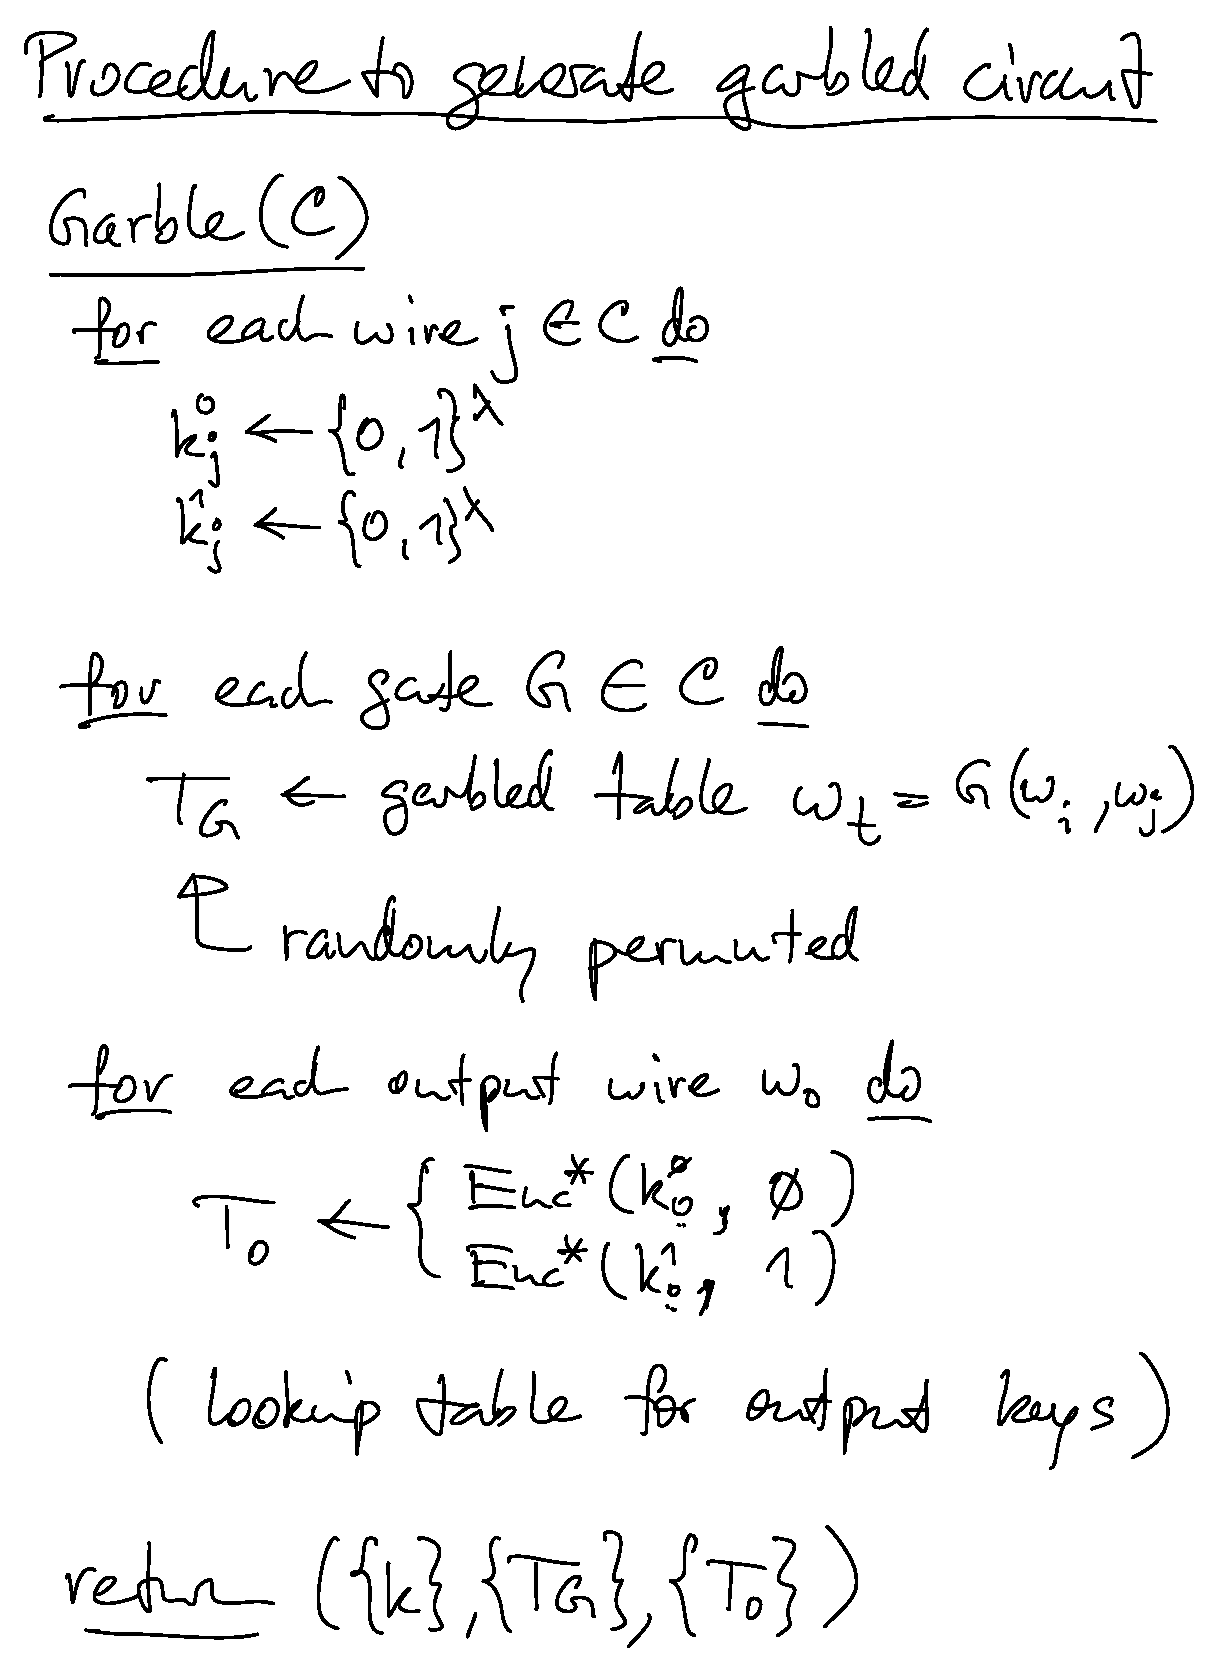 Procedure to generate garbled circuit
Garble(C)
for each wire j ∈ C do
k_j^0 ← {0,1}^λ
k_j^1 ← {0,1}^λ
for each gate G ∈ C do
T_G ← garbled table w_t = G(w_i, w_j)
randomly permuted
for each output wire w_o do
T_o ← { Enc*(k_o^0, 0)
Enc*(k_o^1, 1)
(lookup table for output keys)
return ({k}, {T_G}, {T_o})